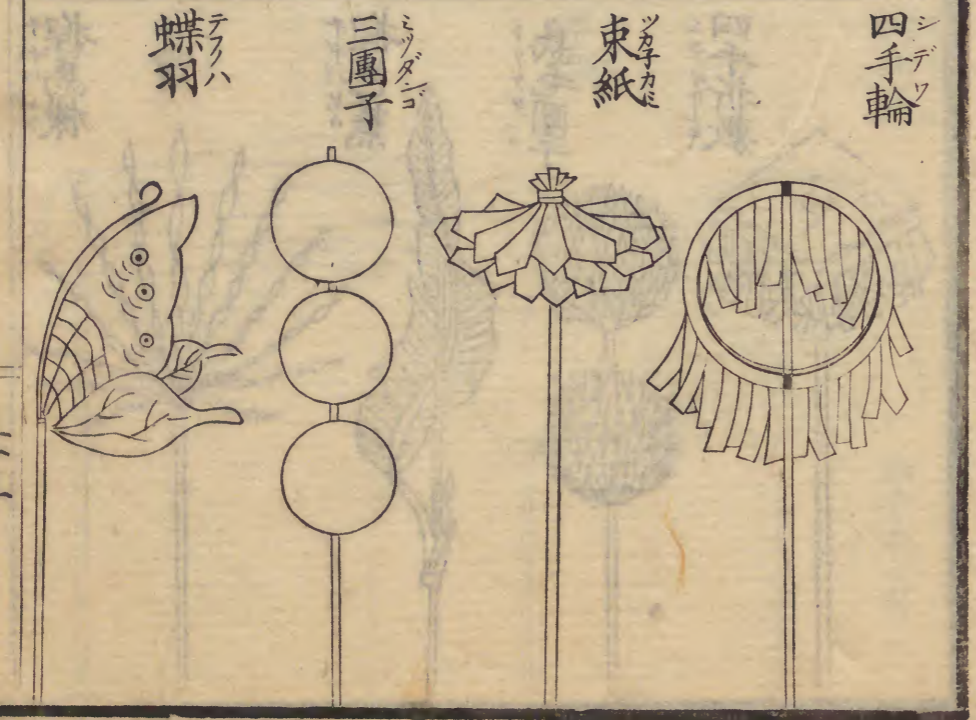 四手輪
シデワ
束紙
ツカ子カミ
三團子
ミツダンゴ
蝶羽
テフハ